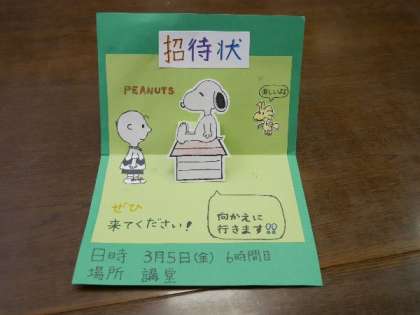 招待状
PEANUTS
楽しいよ♪
ぜひ
来てください!
向かえに
行きます!!
日時 3月5日(金) 6時間目
場所 講堂